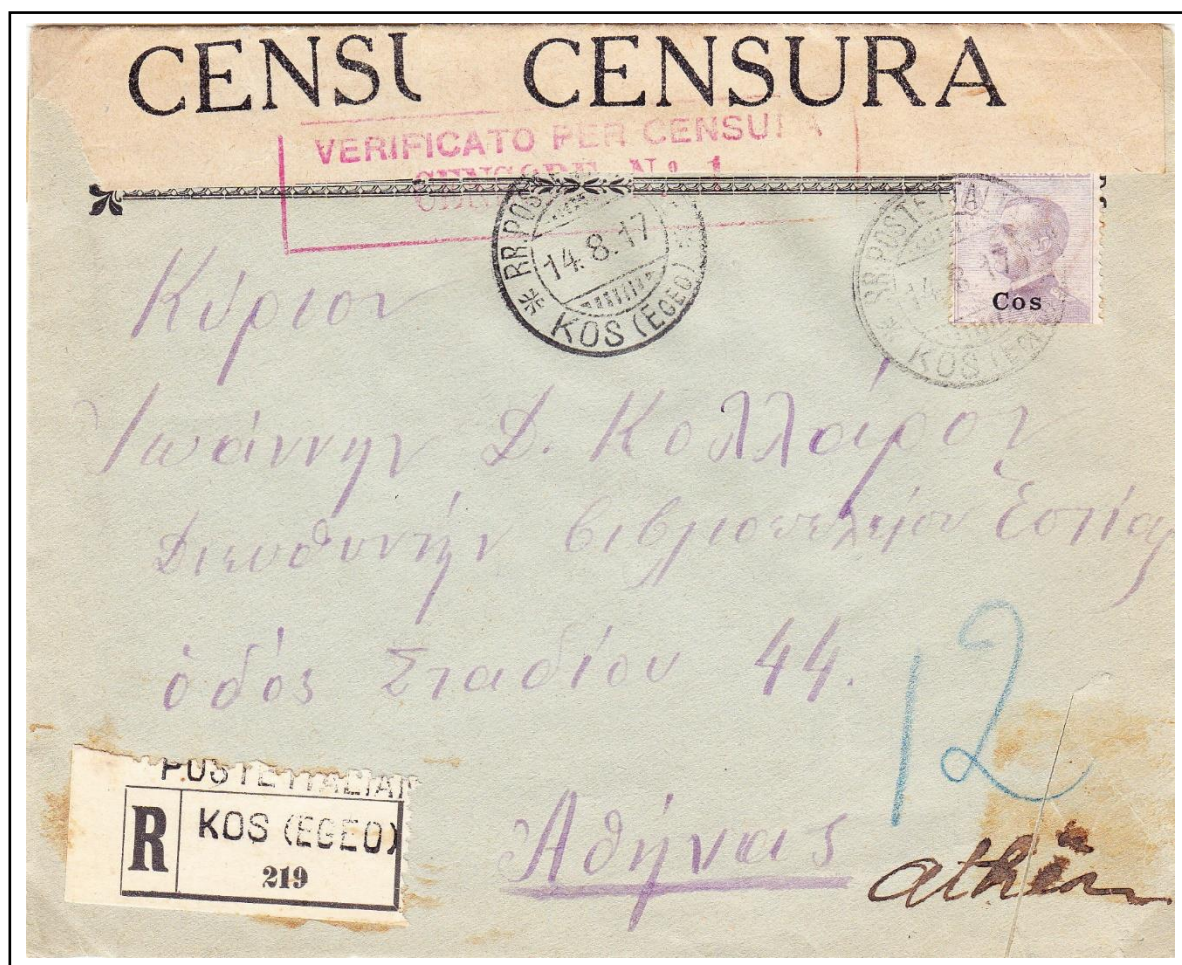 CENSU CENSURA
VERIFICATO PER CENSURA
CENSORE Nº 1
RR. POSTE
14.8.17
KOS (EGEO)
RR POSTE ITAL
14.8.17
KOS (EGEO)
Cos
Κύριον
Ἰωάννην Δ. Κολλάρον
Διευθυντὴν βιβλιοπωλείου Ἑστίας
ὁδός Σταδίου 44.
12
POSTE ITALIAN
R KOS (EGEO)
219
Ἀθήνας